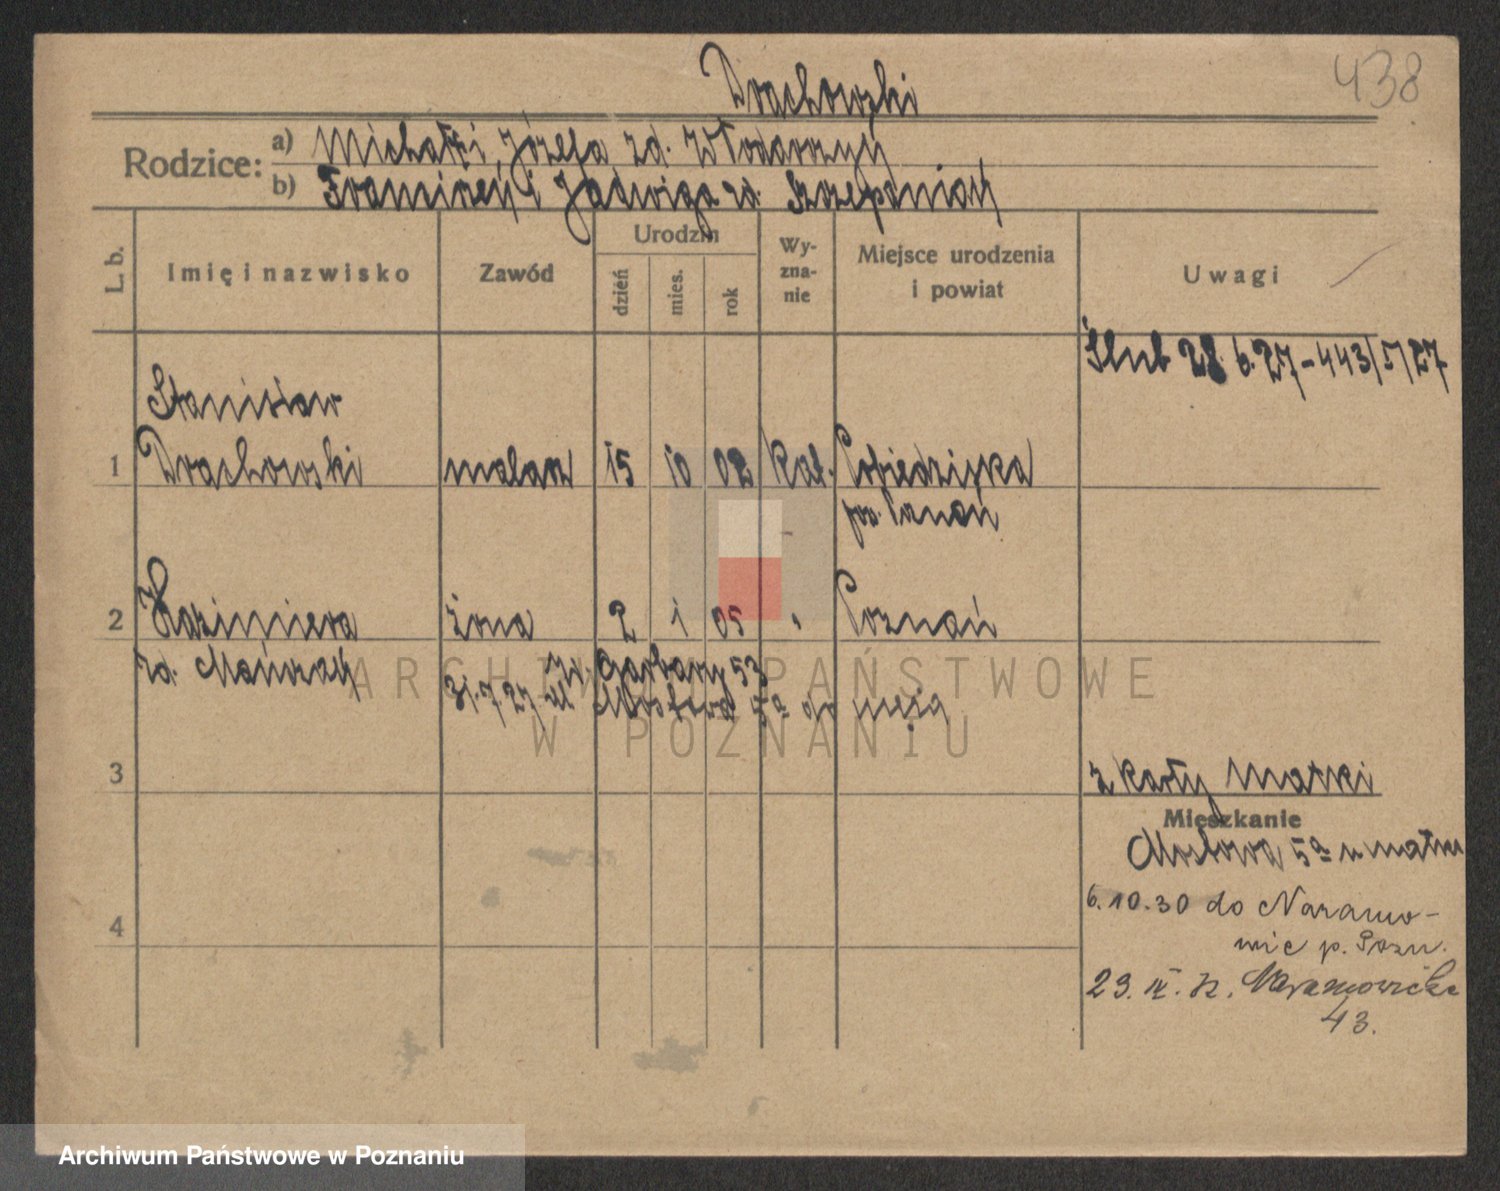 438
Drachowski
Rodzice:
a) Michał i Józefa zd. Włodarczyk
b) Franciszek i Jadwiga zd. Szczepaniak
L. b.
Imię i nazwisko
Zawód
Urodzin
dzień
mies.
rok
Wy-
zna-
nie
Miejsce urodzenia
i powiat
Uwagi
Ślub 28. 6. 27 - 443/5/27
Stanisław
1 Drachowski malarz 15 10 02 kat. Pobiedziska
pow. Poznań
2 Kazimiera żona 2 1 05 " Poznań
zd. Mańczak
Garbary 53
31.7.27 ul Mostowa 5a do męża
3
z karty matki
Mieszkanie
Mostowa 5a u matki
6.10.30 do Naramo-
wic p. Pozn.
4
23. IX. 32. Naramowicka
43.
ARCHIWUM PAŃSTWOWE
W POZNANIU
Archiwum Państwowe w Poznaniu